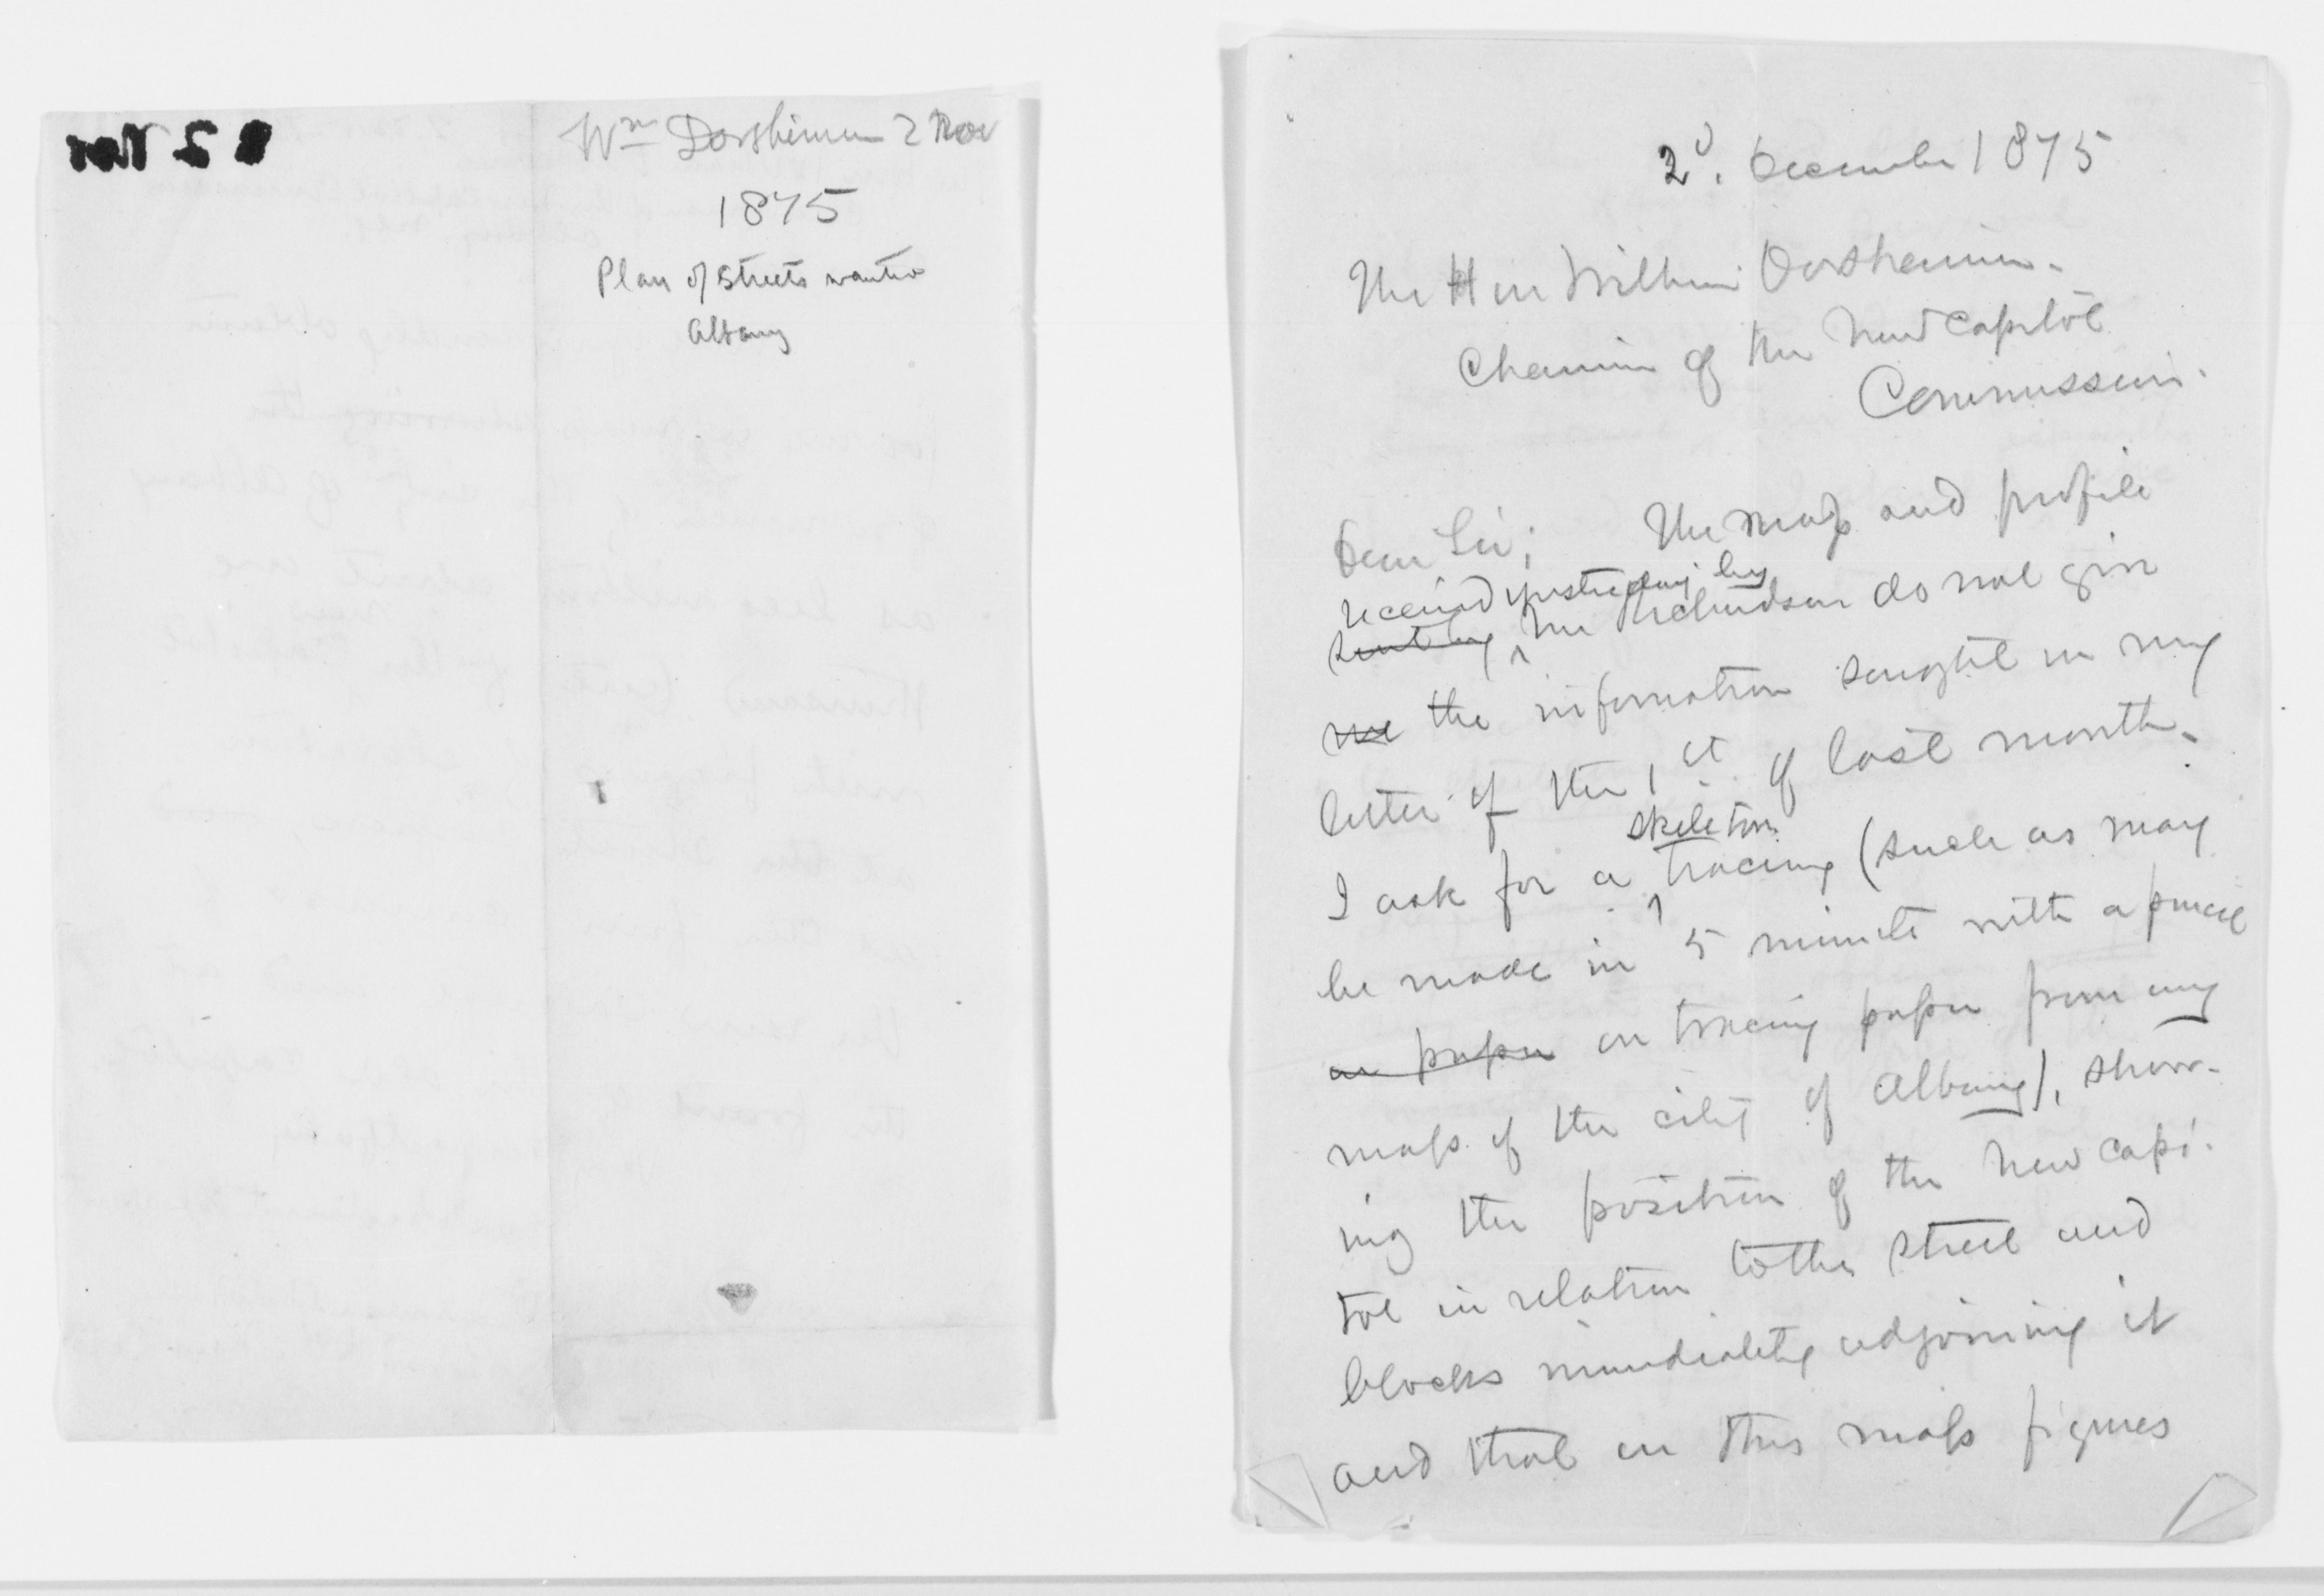 Wm Dorsheimer 2 Nov
1875
Plan of Streets wanted
Albany
2d. December 1875
The Hon William Dorsheimer.
Chairman of the New Capitol
Commission.
Dear Sir; The map and profile
received yesterday by
sent by Mr Richardson do not give
me the information sought in my
letter of the 1st of last month.
skeleton
I ask for a tracing (such as may
be made in 5 minutes with a pencil
on paper on tracing paper from any
map of the city of Albany), show-
ing the position of the New Capi-
tol in relation to the street and
blocks immediately adjoining it
and that on this map figures